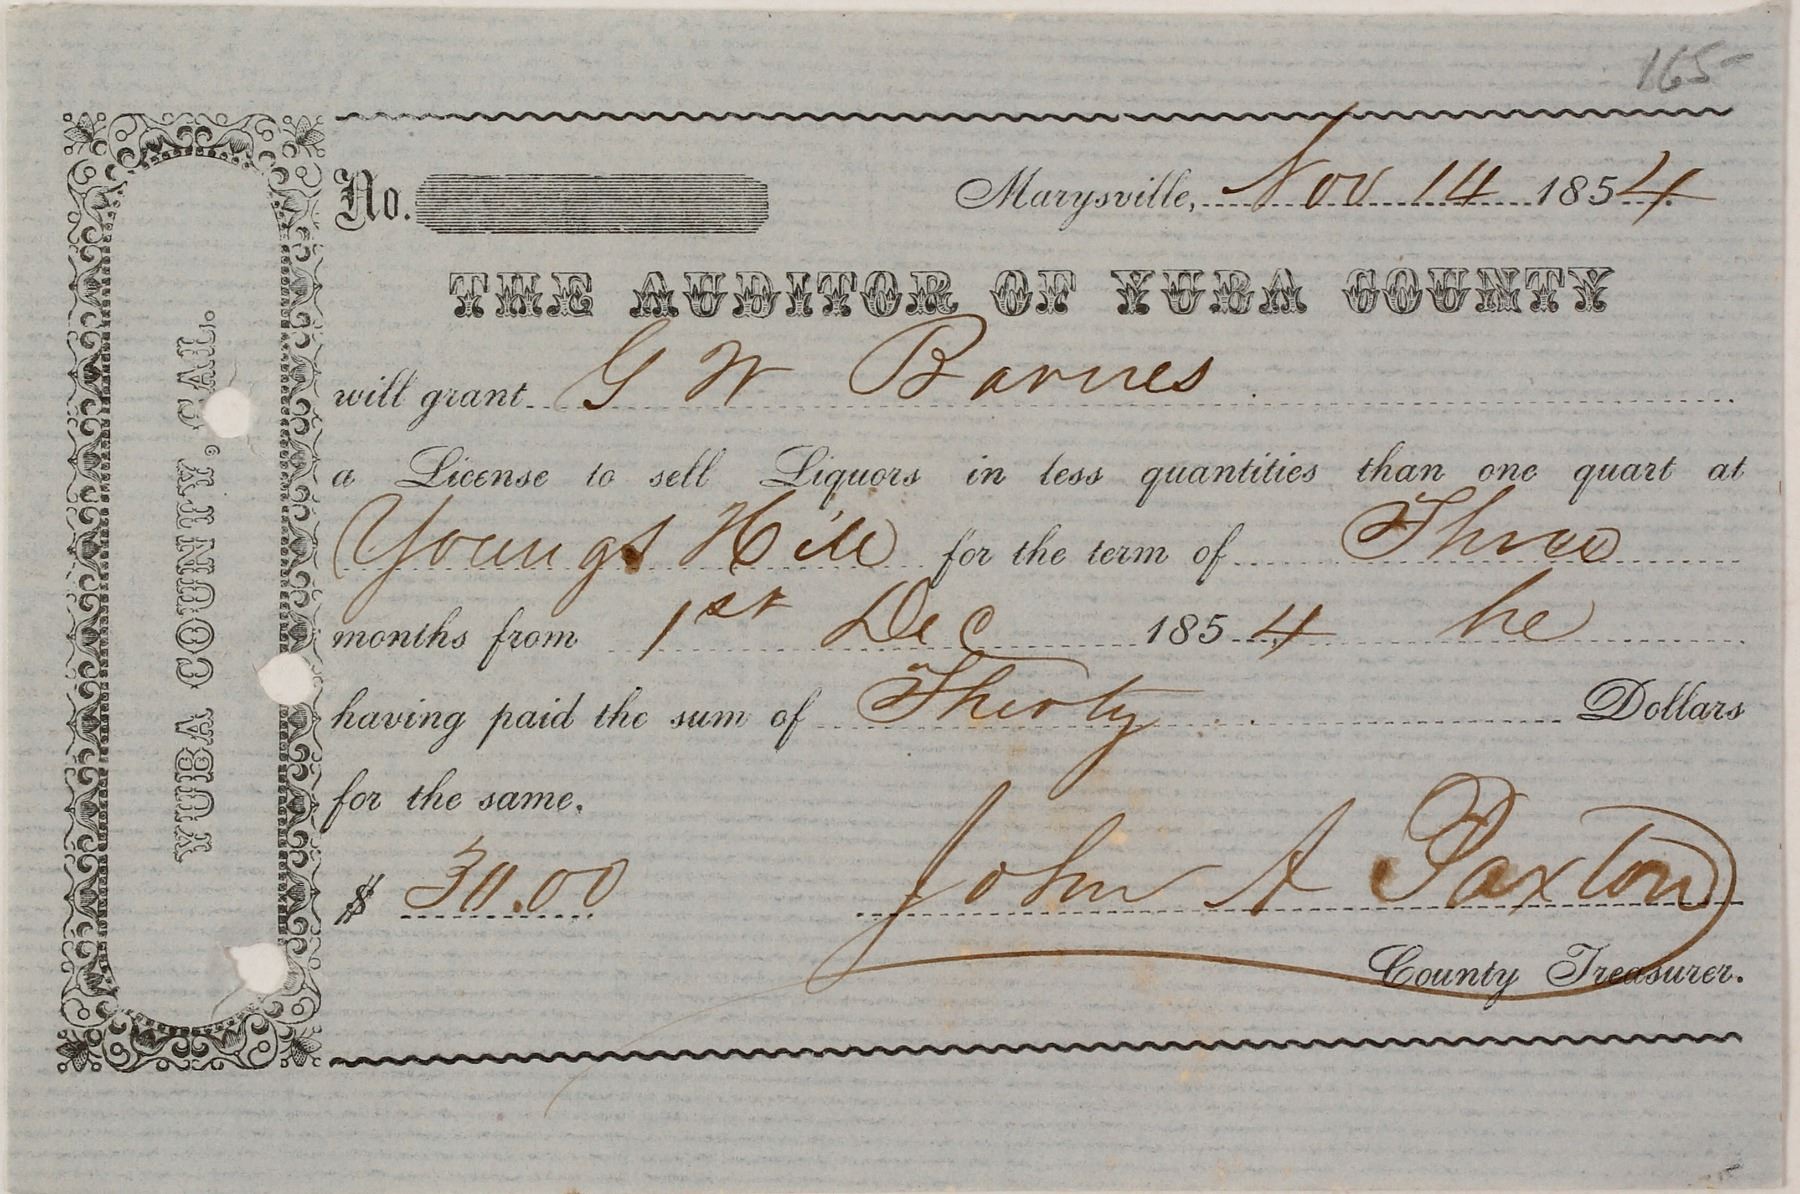 165-
No. Marysville, Nov 14 1854
THE AUDITOR OF YUBA COUNTY
will grant G W Barnes
a License to sell Liquors in less quantities than one quart at
Youngs Hill for the term of Three
months from 1st Dec 1854 he
having paid the sum of Thirty Dollars
for the same.
$ 30.00 John A Paxton
County Treasurer.
YUBA COUNTY, CAL.